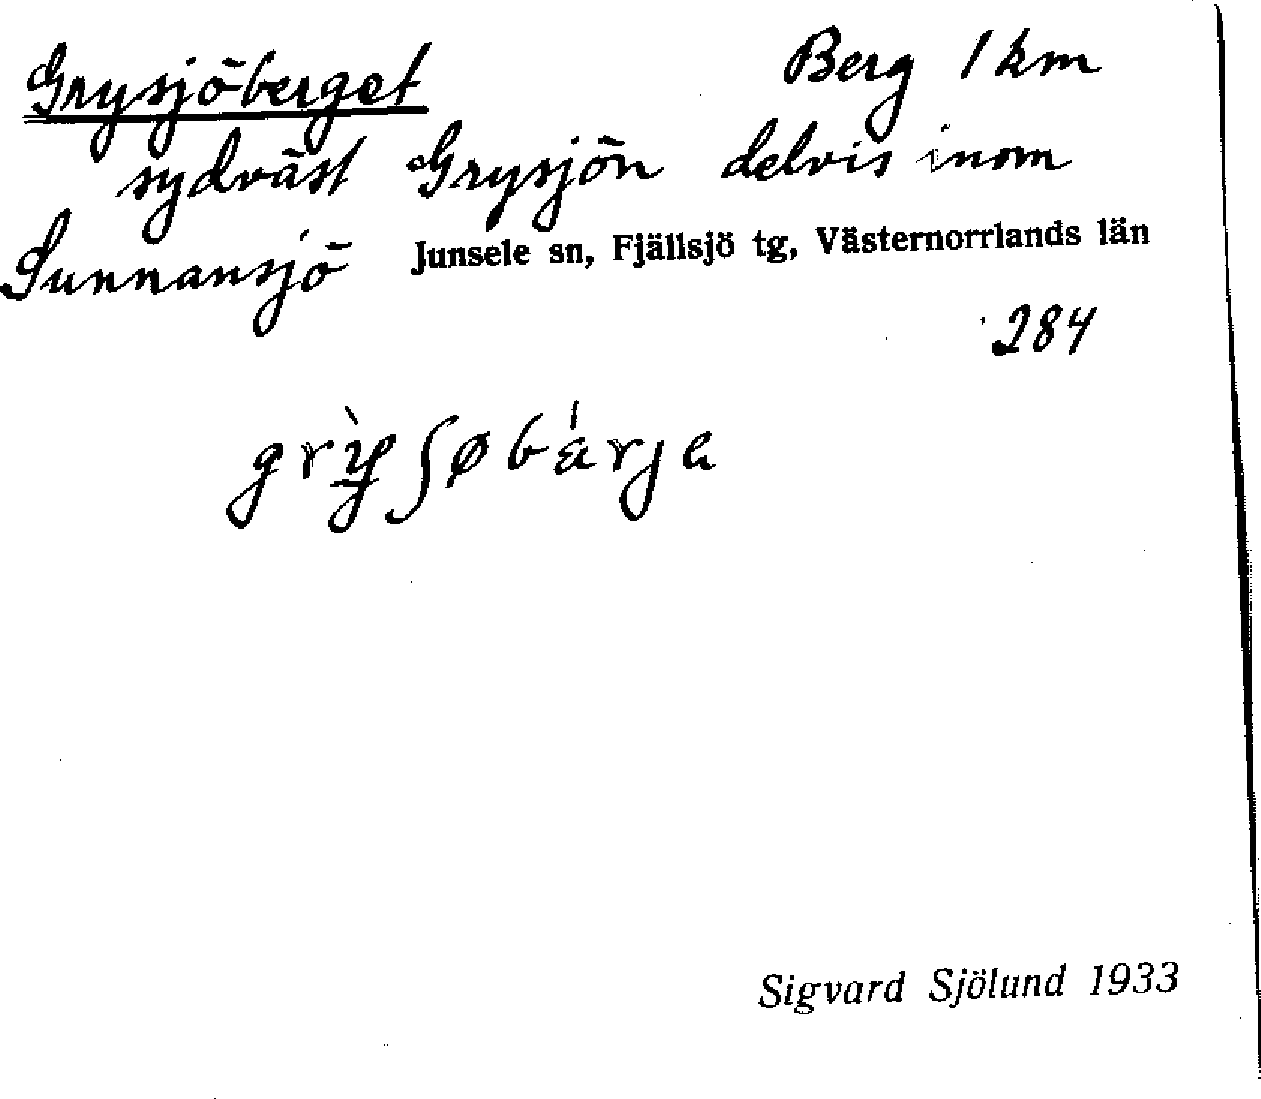 Grysjöberget Berg 1 km
sydväst Grysjön delvis inom
Sunnansjö Junsele sn, Fjällsjö tg, Västernorrlands län
284
grỳʃøbárja
Sigvard Sjölund 1933